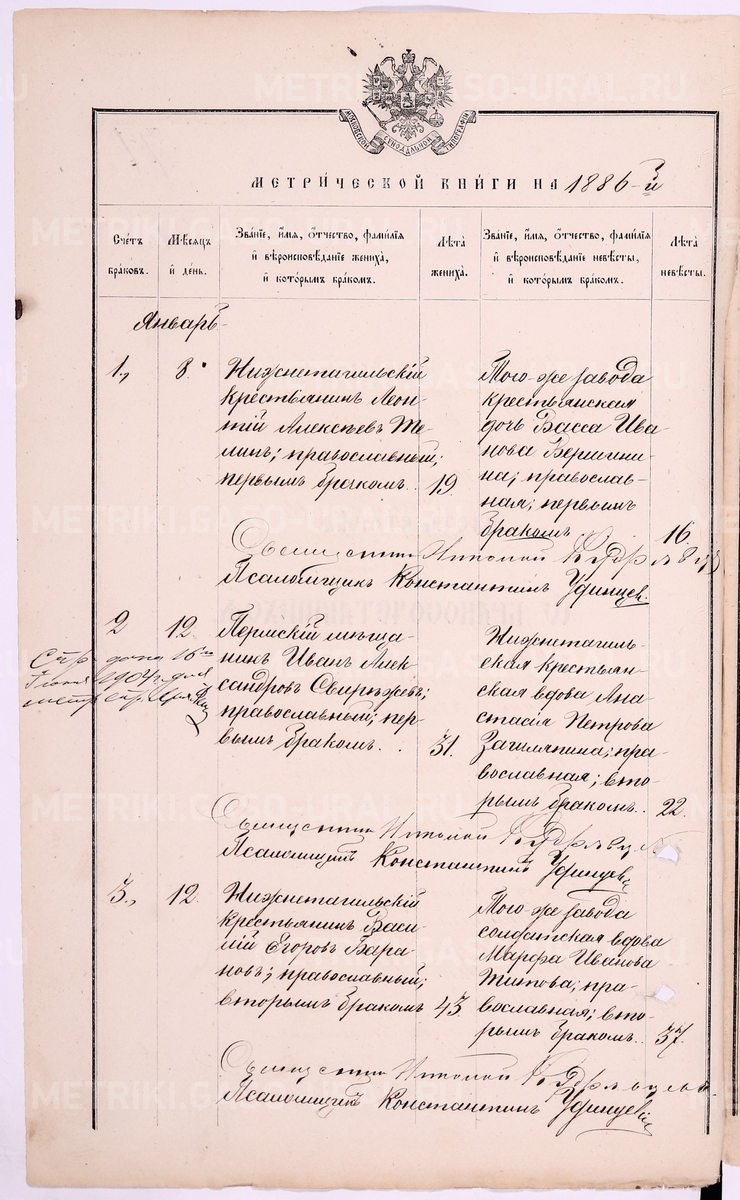 МОСКОВСКОЙ СѴНОДАЛЬНОЙ ТИПОГРАФІИ
МЕТРИ́ЧЕСКОЙ КНИ́ГИ НА 1886-й
Сче́тъ бра́ковъ.
Мѣ́сяцъ и де́нь.
Зва́нїе, и́мя, ѻ́тчество, фами́лїя
и вѣроисповѣ́данїе жениха̀,
и кото́рымъ бра́комъ.
Лѣ́та жениха̀.
Зва́нїе, и́мя, ѻ́тчество, фами́лїя
и вѣроисповѣ́данїе невѣ́сты,
и кото́рымъ бра́комъ.
Лѣ́та невѣ́сты.
Январь
1, 8.
Нижнетагильскій
крестьянинъ Леон-
тій Алексѣевъ Те-
линъ; православный;
первымъ бракомъ. 19.
Того-же завода
крестьянская
дочь Васса Ива-
нова Вершини-
на; православ-
ная; первымъ
бракомъ 16.
Священникъ Николай
Псаломщикъ Константинъ Удинцев.
2 12.
Пермскій мѣща-
никъ Иванъ Алек-
сандровъ Свирѣжевъ;
православный; пер-
вымъ бракомъ. 31.
Нижнетагиль-
ская крестьян-
ская вдова Ана-
стасія Петрова
Загиляпина; пра-
вославная; вто-
рымъ бракомъ. 22.
16 Іюня 1904 г.
Священникъ Николай
Псаломщикъ Константинъ Удинцевъ
3, 12.
Нижнетагильскій
крестьянинъ Васи-
лій Егоровъ Бара-
новъ; православный;
вторымъ бракомъ 43
Того-же завода
солдатская вдова
Марфа Иванова
Титова; пра-
вославная; вто-
рымъ бракомъ. 37.
Священникъ Николай
Псаломщикъ Константинъ Удинцевъ
METRIKI.GASO-URAL.RU